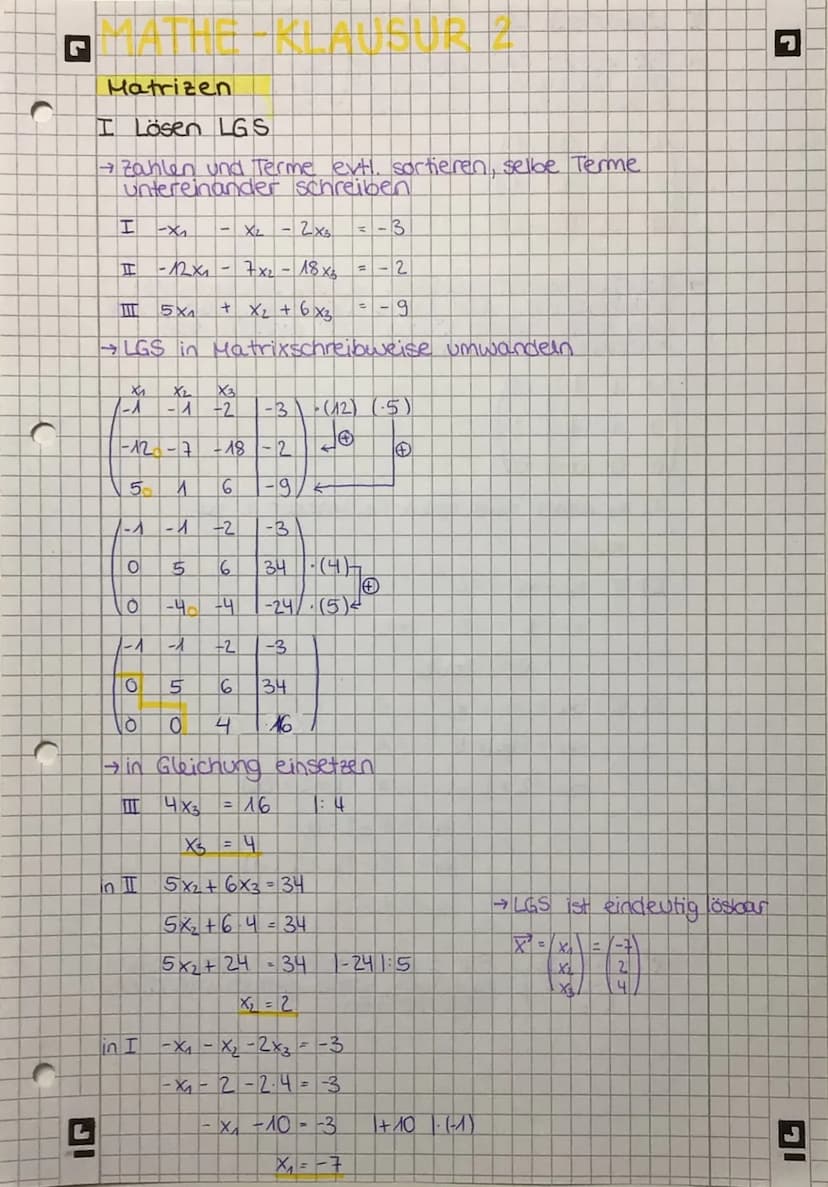 MATHE-KLAUSUR 2
Matrizen
I Lösen LGS
→ Zahlen und Terme evtl. sortieren, selbe Terme
untereinander schreiben
I -x₁ - x₂ - 2x₃ = -3
II -12x₁ - 7x₂ - 18x₃ = -2
III 5x₁ + x₂ + 6x₃ = -9
→ LGS in Matrixschreibweise umwandeln
x₁ x₂ x₃
-1 -1 -2 | -3 ·(12) (·5)
-12 0 -7 -18 | -2 ⊕ ⊕
5 0 1 6 | -9
-1 -1 -2 | -3
0 5 6 | 34 ·(4) ⊕
0 -4 0 -4 | -24 ·(5)
-1 -1 -2 | -3
0 5 6 | 34
0 0 4 | 16
→ in Gleichung einsetzen
III 4x₃ = 16 |: 4
x₃ = 4
in II 5x₂ + 6x₃ = 34
5x₂ + 6·4 = 34
5x₂ + 24 = 34 |-24 |:5
x₂ = 2
→ LGS ist eindeutig lösbar
x⃗ = (x₁ x₂ x₃) = (-7 2 4)
in I -x₁ - x₂ - 2x₃ = -3
-x₁ - 2 - 2·4 = -3
-x₁ - 10 = -3 |+10 |·(-1)
x₁ = -7